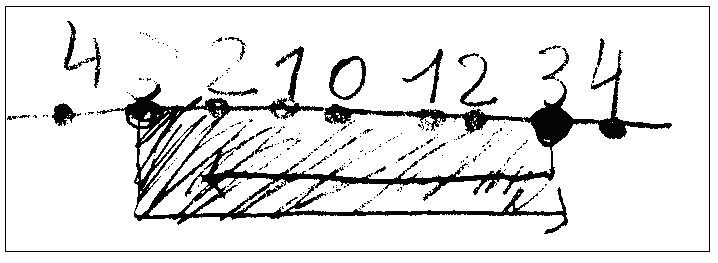 4 3 2 1 0 1 2 3 4